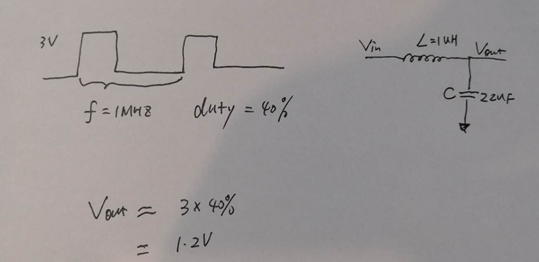 3V
f = 1MHz duty = 40%
Vin L=1uH Vout
C 22uF
Vout ≈ 3 x 40%
= 1.2V